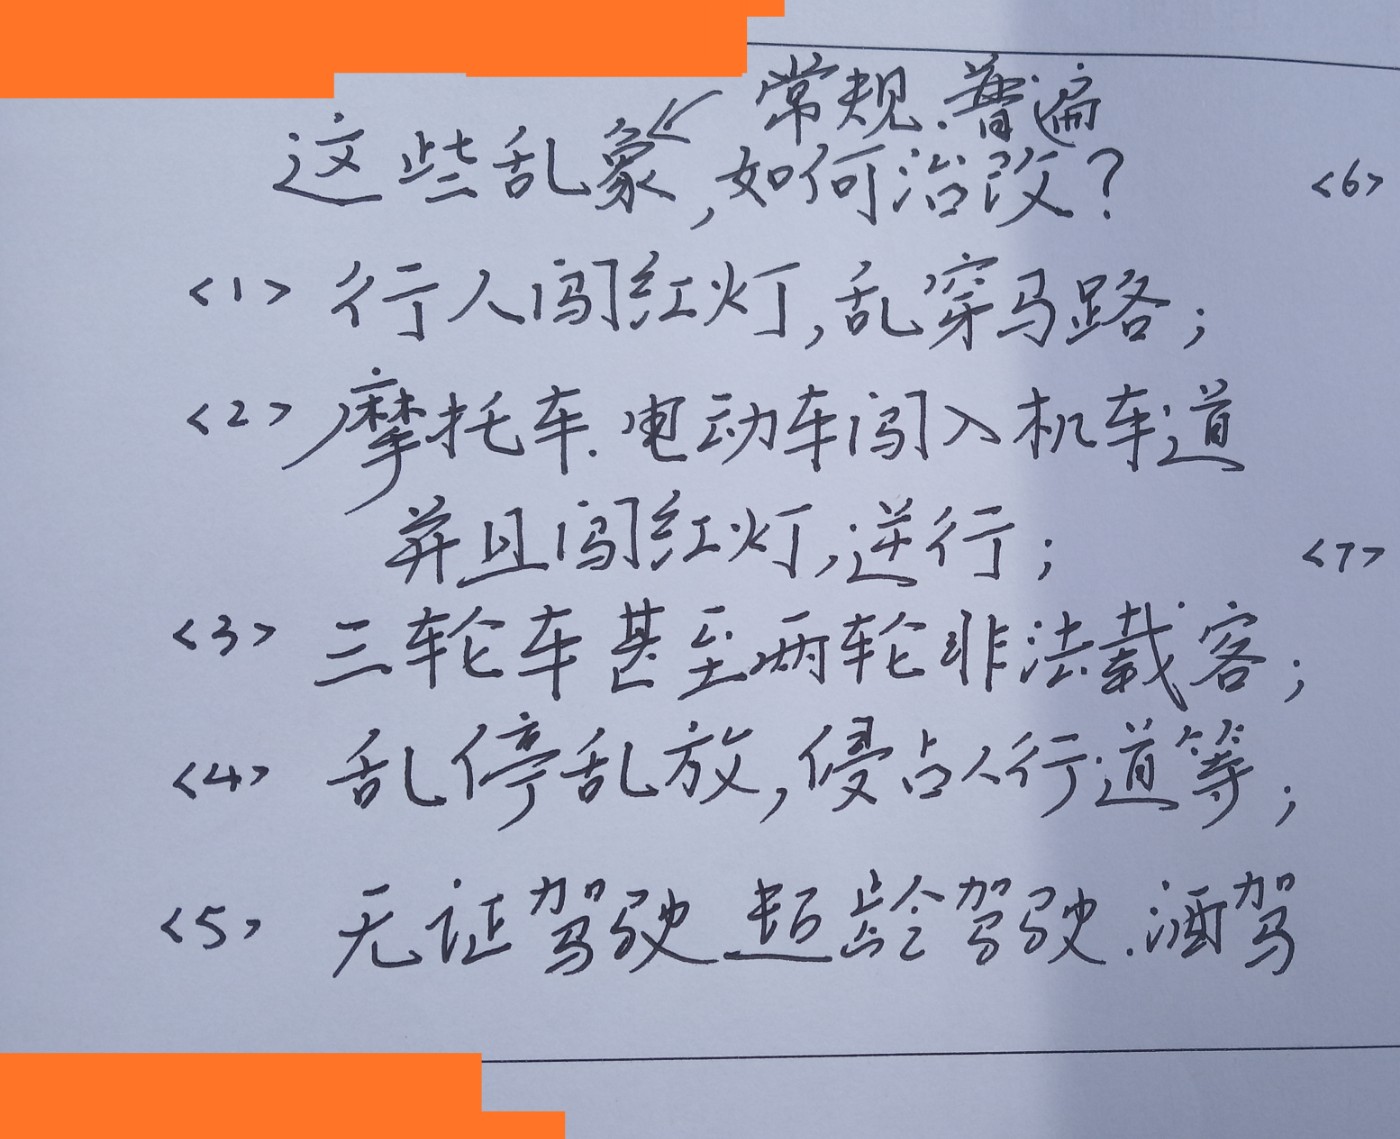 常规.普遍
这些乱象,如何治改?
<6>
<1> 行人闯红灯,乱穿马路;
<2> 摩托车.电动车闯入机车道
并且闯红灯,逆行;
<7>
<3> 三轮车甚至两轮非法载客;
<4> 乱停乱放,侵占人行道等;
<5> 无证驾驶 超龄驾驶.酒驾